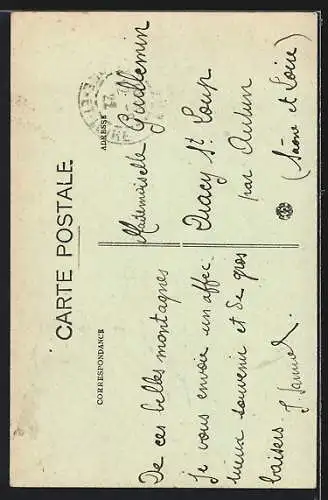 CARTE POSTALE
CORRESPONDANCE
ADRESSE
De ces belles montagnes
Je vous envoie un affec
tueux souvenir et de gros
baisers
Mademoiselle Guillemin
Dracy St Loup
par Autun
(Saône et Loire)